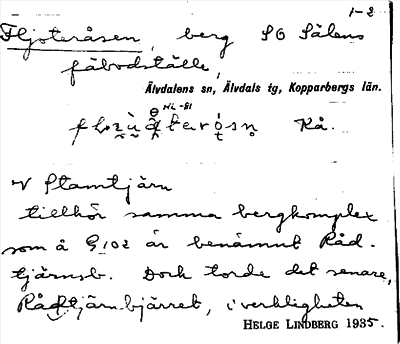 1-2
Fljoteråsen, berg SO Sälens
fäbodställe,
Älvdalens sn, Älvdals tg, Kopparbergs län.
Rå.
V Stamtjärn
tillhör samma bergkomplex
som å G 102 är benämnt Råd-
tjärnsb. Dock torde det senare,
Rådtjärnbjärret, i verkligheten
HELGE LINDBERG 1935.